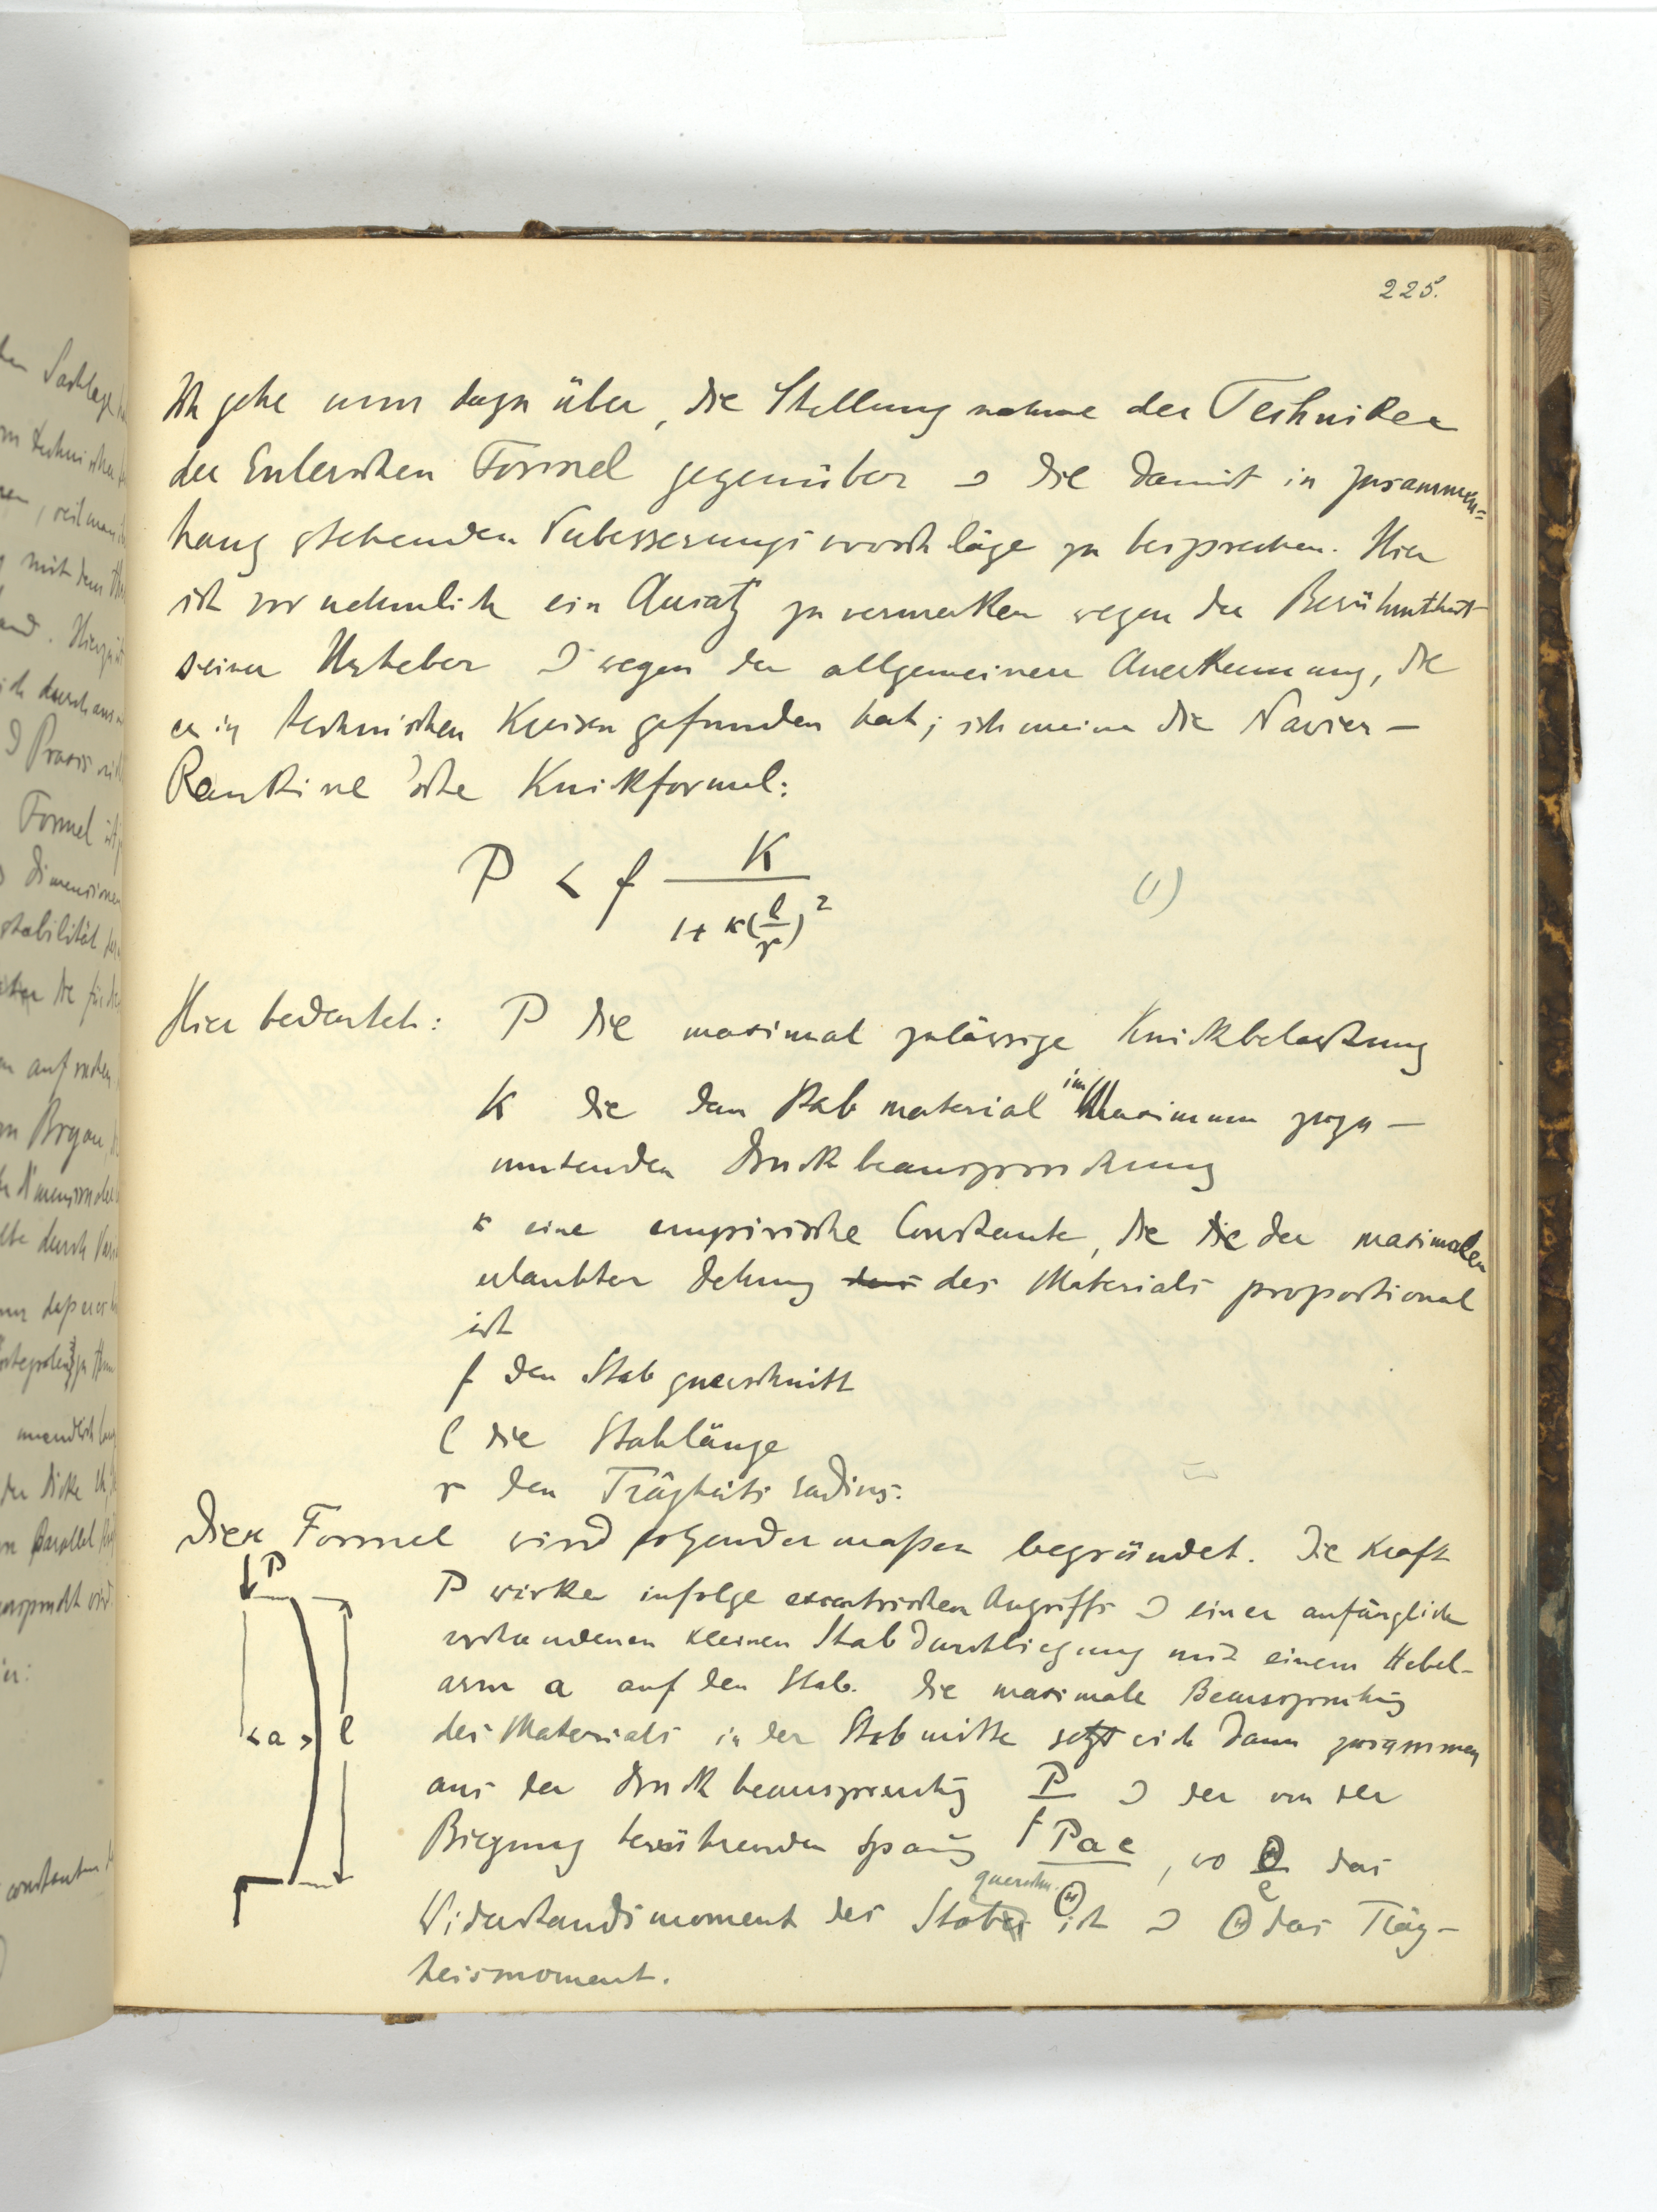 225.
Ich gehe nun dazu über, die Stellungnahme der Techniker
der Eulerschen Formel gegenüber u die damit in zusammen=
hang stehenden Verbesserungsvorschläge zu besprechen. Hier
ist vornehmlich ein Ansatz zu vermerken wegen der Berühmtheit
seiner Urheber u wegen der allgemeinen Anerkennung, die
er in technischen Kreisen gefunden hat; ich meine die Navier-
Rankine'sche Knickformel:
P < f K / (1 + κ(l/r)²) (1)
Hier bedeutet: P die maximal zulässige Knickbelastung
K die dem Stabmaterial im Maximum zuzu-
mutenden Druckbeanspruchung
κ eine empirische Constante, die die der maximalen
erlaubten Dehnung des Materials proportional
ist
f den Stabquerschnitt
l die Stablänge
r den Trägheitsradius.
Diese Formel wird folgendermaßen begründet. Die Kraft
P
P wirke infolge excentrischen Angriffs u einer anfänglich
vorhandenen kleinen Stabdurchbiegung mit einem Hebel-
arm a auf den Stab. Die maximale Beanspruchung
a l
des Materials in der Stabmitte setzt sich dann zusammen
aus der Druckbeanspruchung P/f u der von der
Biegung herrührenden Spannung Pae/Θ, wo Θ/e das
Widerstandsmoment des Stabquerschn. ist u Θ das Träg-
heismoment.